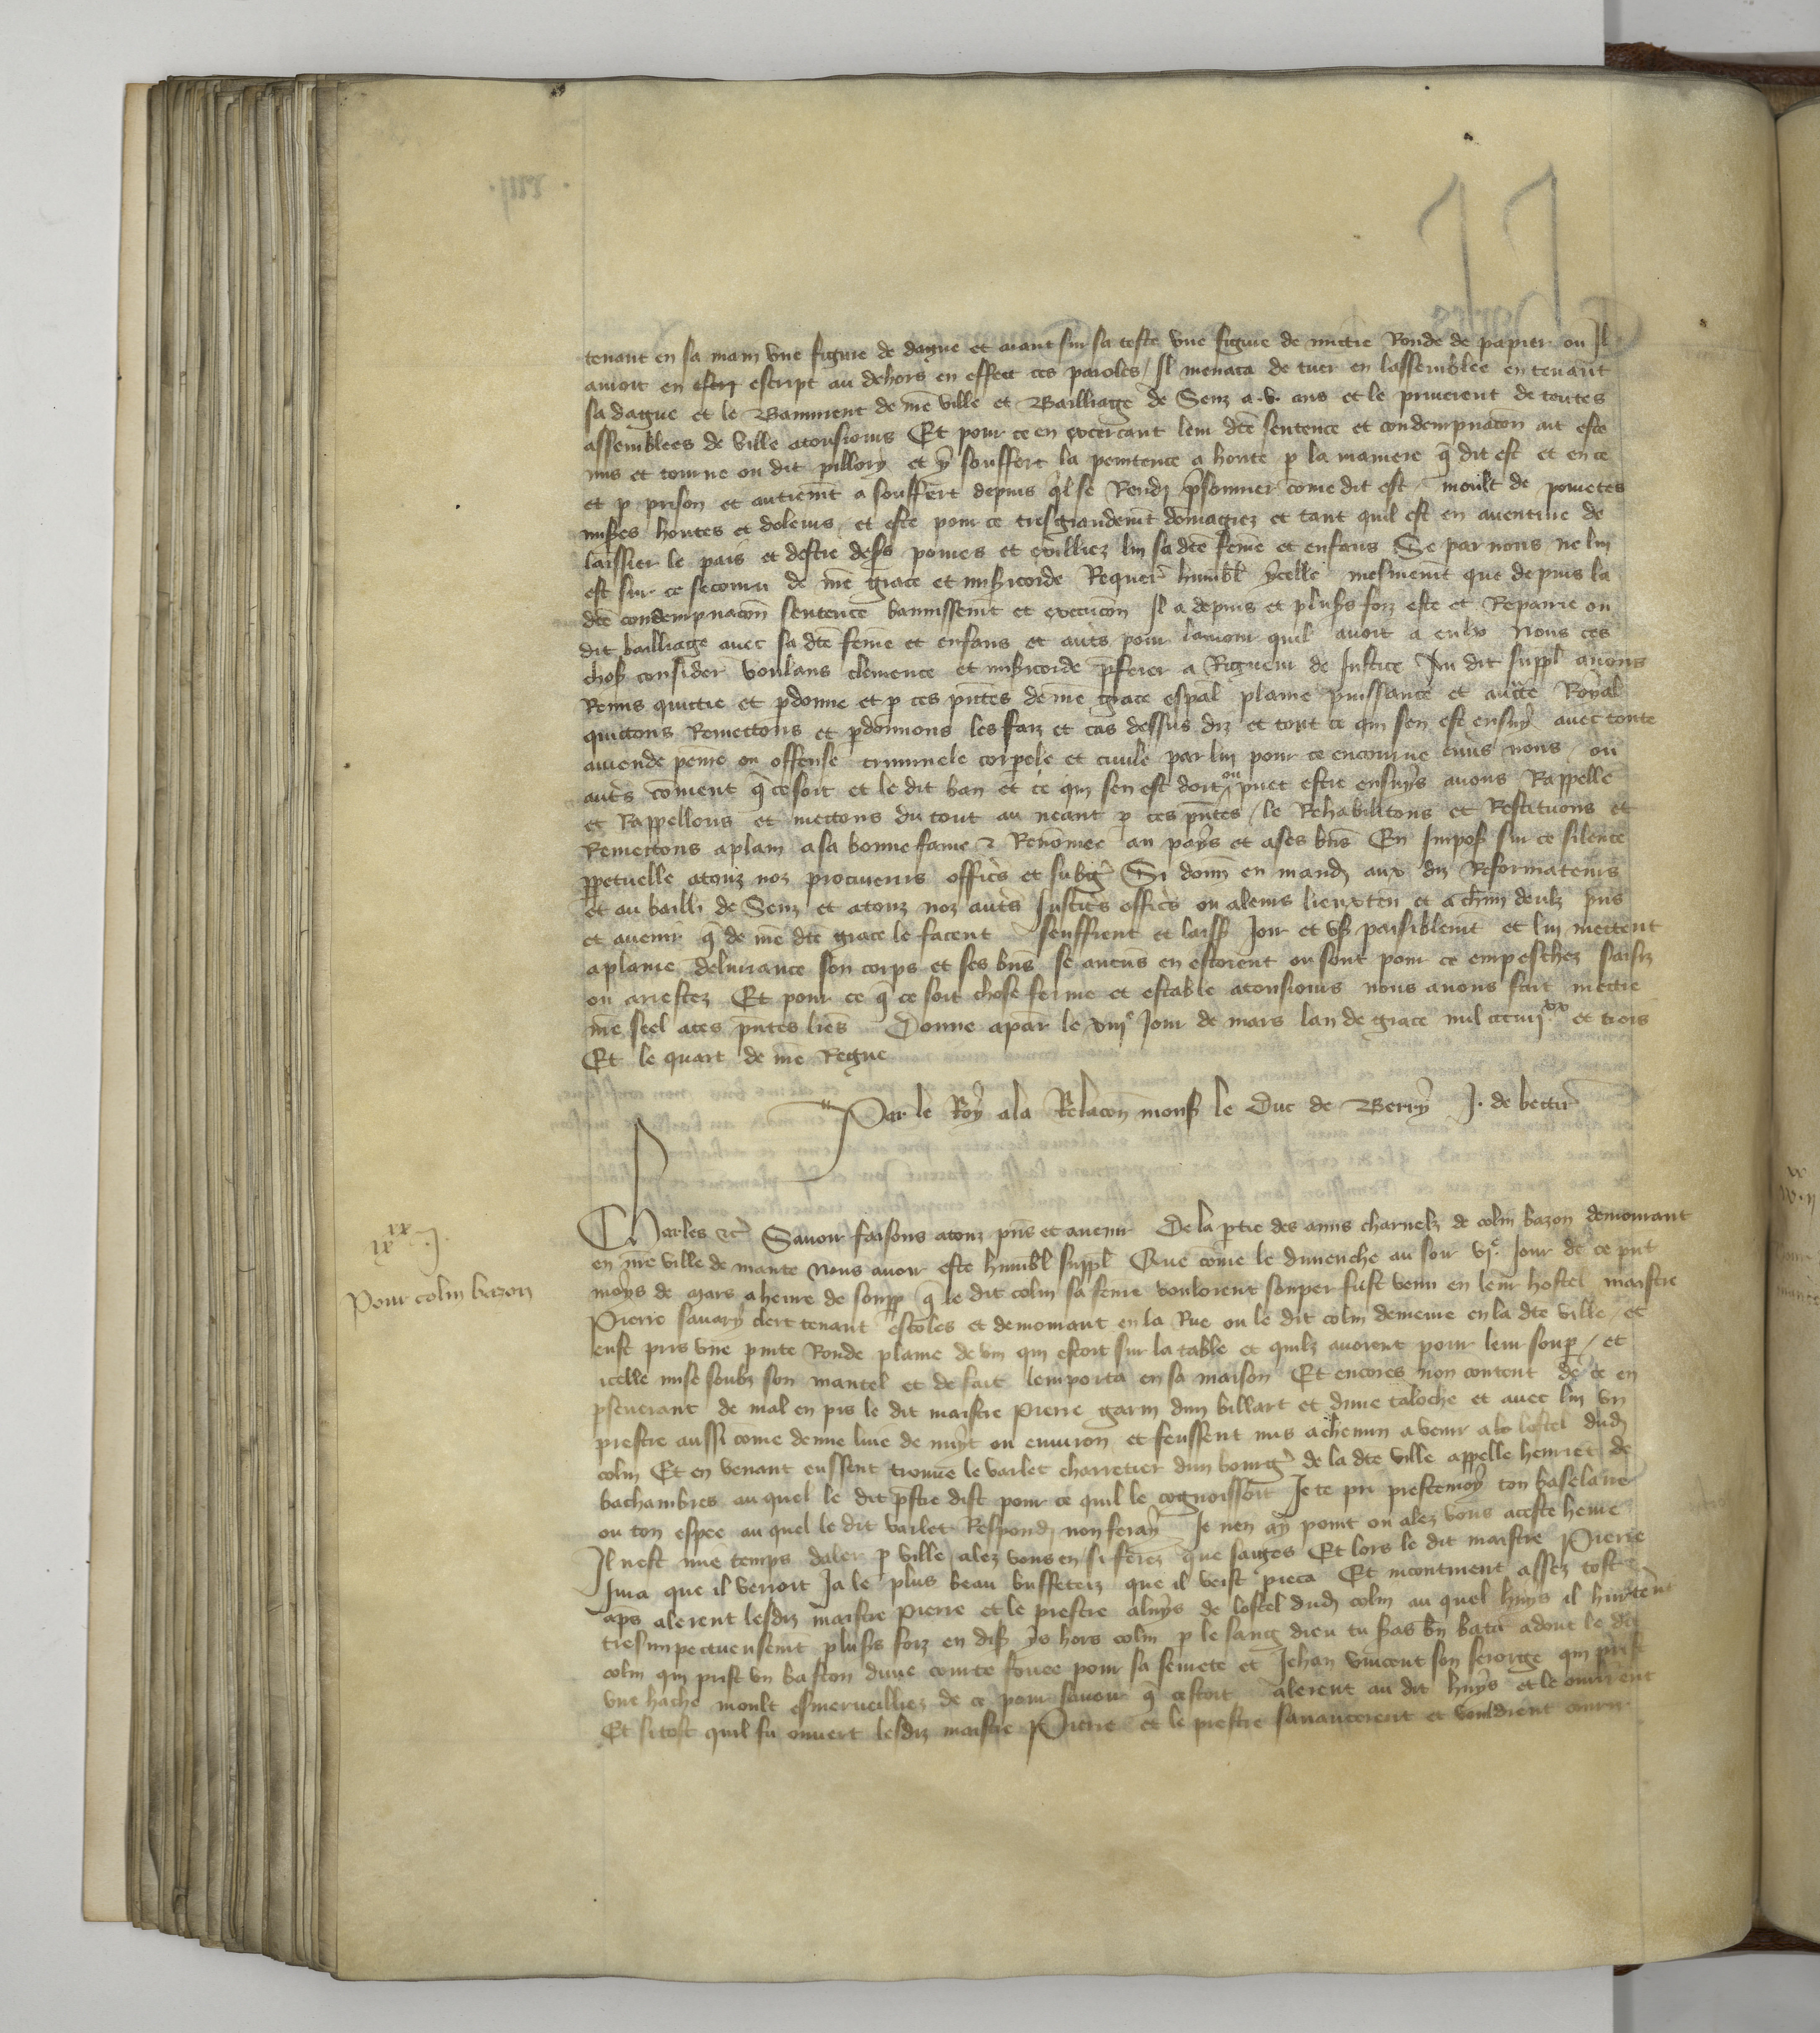 tenant en sa main une figure de dague et aiant sur sa teste une figure de mittre Ronde de papier ou Il
avoit en escript au dehors en effect ces paroles / Il menaca de tuer en lassemblee en tenant
sa dague et le Bannirent de nre ville et Bailliage de Senz a .v. ans et le priverent de toutes
assemblees de ville atousiours Et pour ce en excercant leur dcte sentence et condempnacon ait este
mis et tourne ou dit pillory et y souffert la penitence a honte p la maniere q dit est et en ce
et p prison et autremt a souffert depuis ql se Rendi prisonnier come dit est / moult de povretes
mises hontes et doleurs / et este pour ce tresgrandemt domagiez et tant quil est en aventure de
laissier le pais et destre desers povres et exilliez lui sa dte feme et enfans Se par nous ne lui
est sur ce secouru de nre grace et misicorde Requert humbl ycelle mesmemt que depuis la
dte condempnacon sentence bannissemt et execucon Il a depuis et plusrs foiz este et Repairie ou
dit bailliage avec sa dte feme et enfans et autrs pour lamour quil avoit a eulx Nous ces
choses consider voulans clemence et misicorde pferer a Rigueur de Justice Au dit suppl avons
Remis quictie et pdonne et p ces pntes de nre grace espal plaine puissance et aucte Royal
quictons Remectons et pdonnons les faiz et cas dessus diz et tout ce qui sen est ensuy avec toute
amende peine ou offense criminele corpele et civile par lui pour ce encourue envs nous / ou
autrs coment q ce soit et le dit ban et ce qui sen est doit ou puet estre ensuys avons Rappelle
et Rappellons et mettons du tout au neant p ces pntes / le Rehabilitons et Restituons et
Remettons aplain a sa bonne fame & Renomee au pays et a ses bns En Impos sur ce silence
ppetuelle atouz noz procureurs officrs et subg Si donn en mandt aux diz Reformateurs
et au bailli de Senz et atouz noz autrs Justicrs officrs ou a leurs lieuxten et a chun deulx pns
et avenir q de nre dte grace le facent seuffrent et laiss Joir et us paisiblemt et lui mettent
a plaine delivrance son corps et ses bns se aucuns en estoient ou sont pour ce empeschez saisiz
ou arrestez Et pour ce q ce soit chose ferme et estable atousiours nous avons fait mettre
nre seel a ces pntes lres Donne a par le viije Jour de mars lan de grace mil ccciiijxx et trois
Et le quart de nre Regne
Par le Roy a la Relacon mons le Duc de Berry J. de bectis
Charles &c Savoir faisons atouz pns et avenir De la ptie des amis charnelz de colin bazon demourant
en nre ville de mante nous avoir este humbl suppl Que come le dimenche au soir vje Jour de ce pnt
moys de mars a heure de soupp q le dit colin sa feme vouloient soupper fust venu en leur hostel maistre
ixxx j.
Pour colin bazon
Pierre savary clerc tenant escoles et demourant en la Rue ou le dit colin demeure en la dte ville / et
eust pris une pinte Ronde plaine de vin qui estoit sur la table et quilz avoient pour leur soup / et
icelle mise soubz son mantel et de fait lemporta en sa maison Et encores non content de ce en
pseverant de mal en pis le dit maistre pierre garni dun billart et dune taloche et avec lui un
prestre aussi come demie liue de nuyt ou environ et feussent mis a chemin a venir a lostel dudt
colin Et en venant eussent trouve le varlet charretier dun bourg de la dte ville appelle henriet de
bachambres au quel le dit pstre dist pour ce quil le cognoissoit Je te pri prestemoy ton baselaire
ou ton espee au quel le dit varlet Respondi non feray Je nen ay point ou alez vous a ceste heure
Il nest mie temps daler p ville alez vous en si ferez que saiges Et lors le dit maistre Pierre
Jura que il verroit Ja le plus beau buffeteiz que il veist pieca Et incontinent assez tost
aps alerent lesdiz maistre pierre et le prestre a luys de lostel dudt colin au quel huys il hurterent
tresimpectueusemt plusrs foiz en dis ys hors colin p le sang dieu tu sas bn batu adonc le dit
colin qui prist un baston dune courte fouee pour sa seurete et Jehan vincent son serorge qui prist
une hache moult esmerveilliez de ce pour savoir q cestoit alerent au dit huys et le ouvrirent
Et sitost quil fu ouvert lesdiz maistre Pierre et le prestre savancerent et vouldrent courir